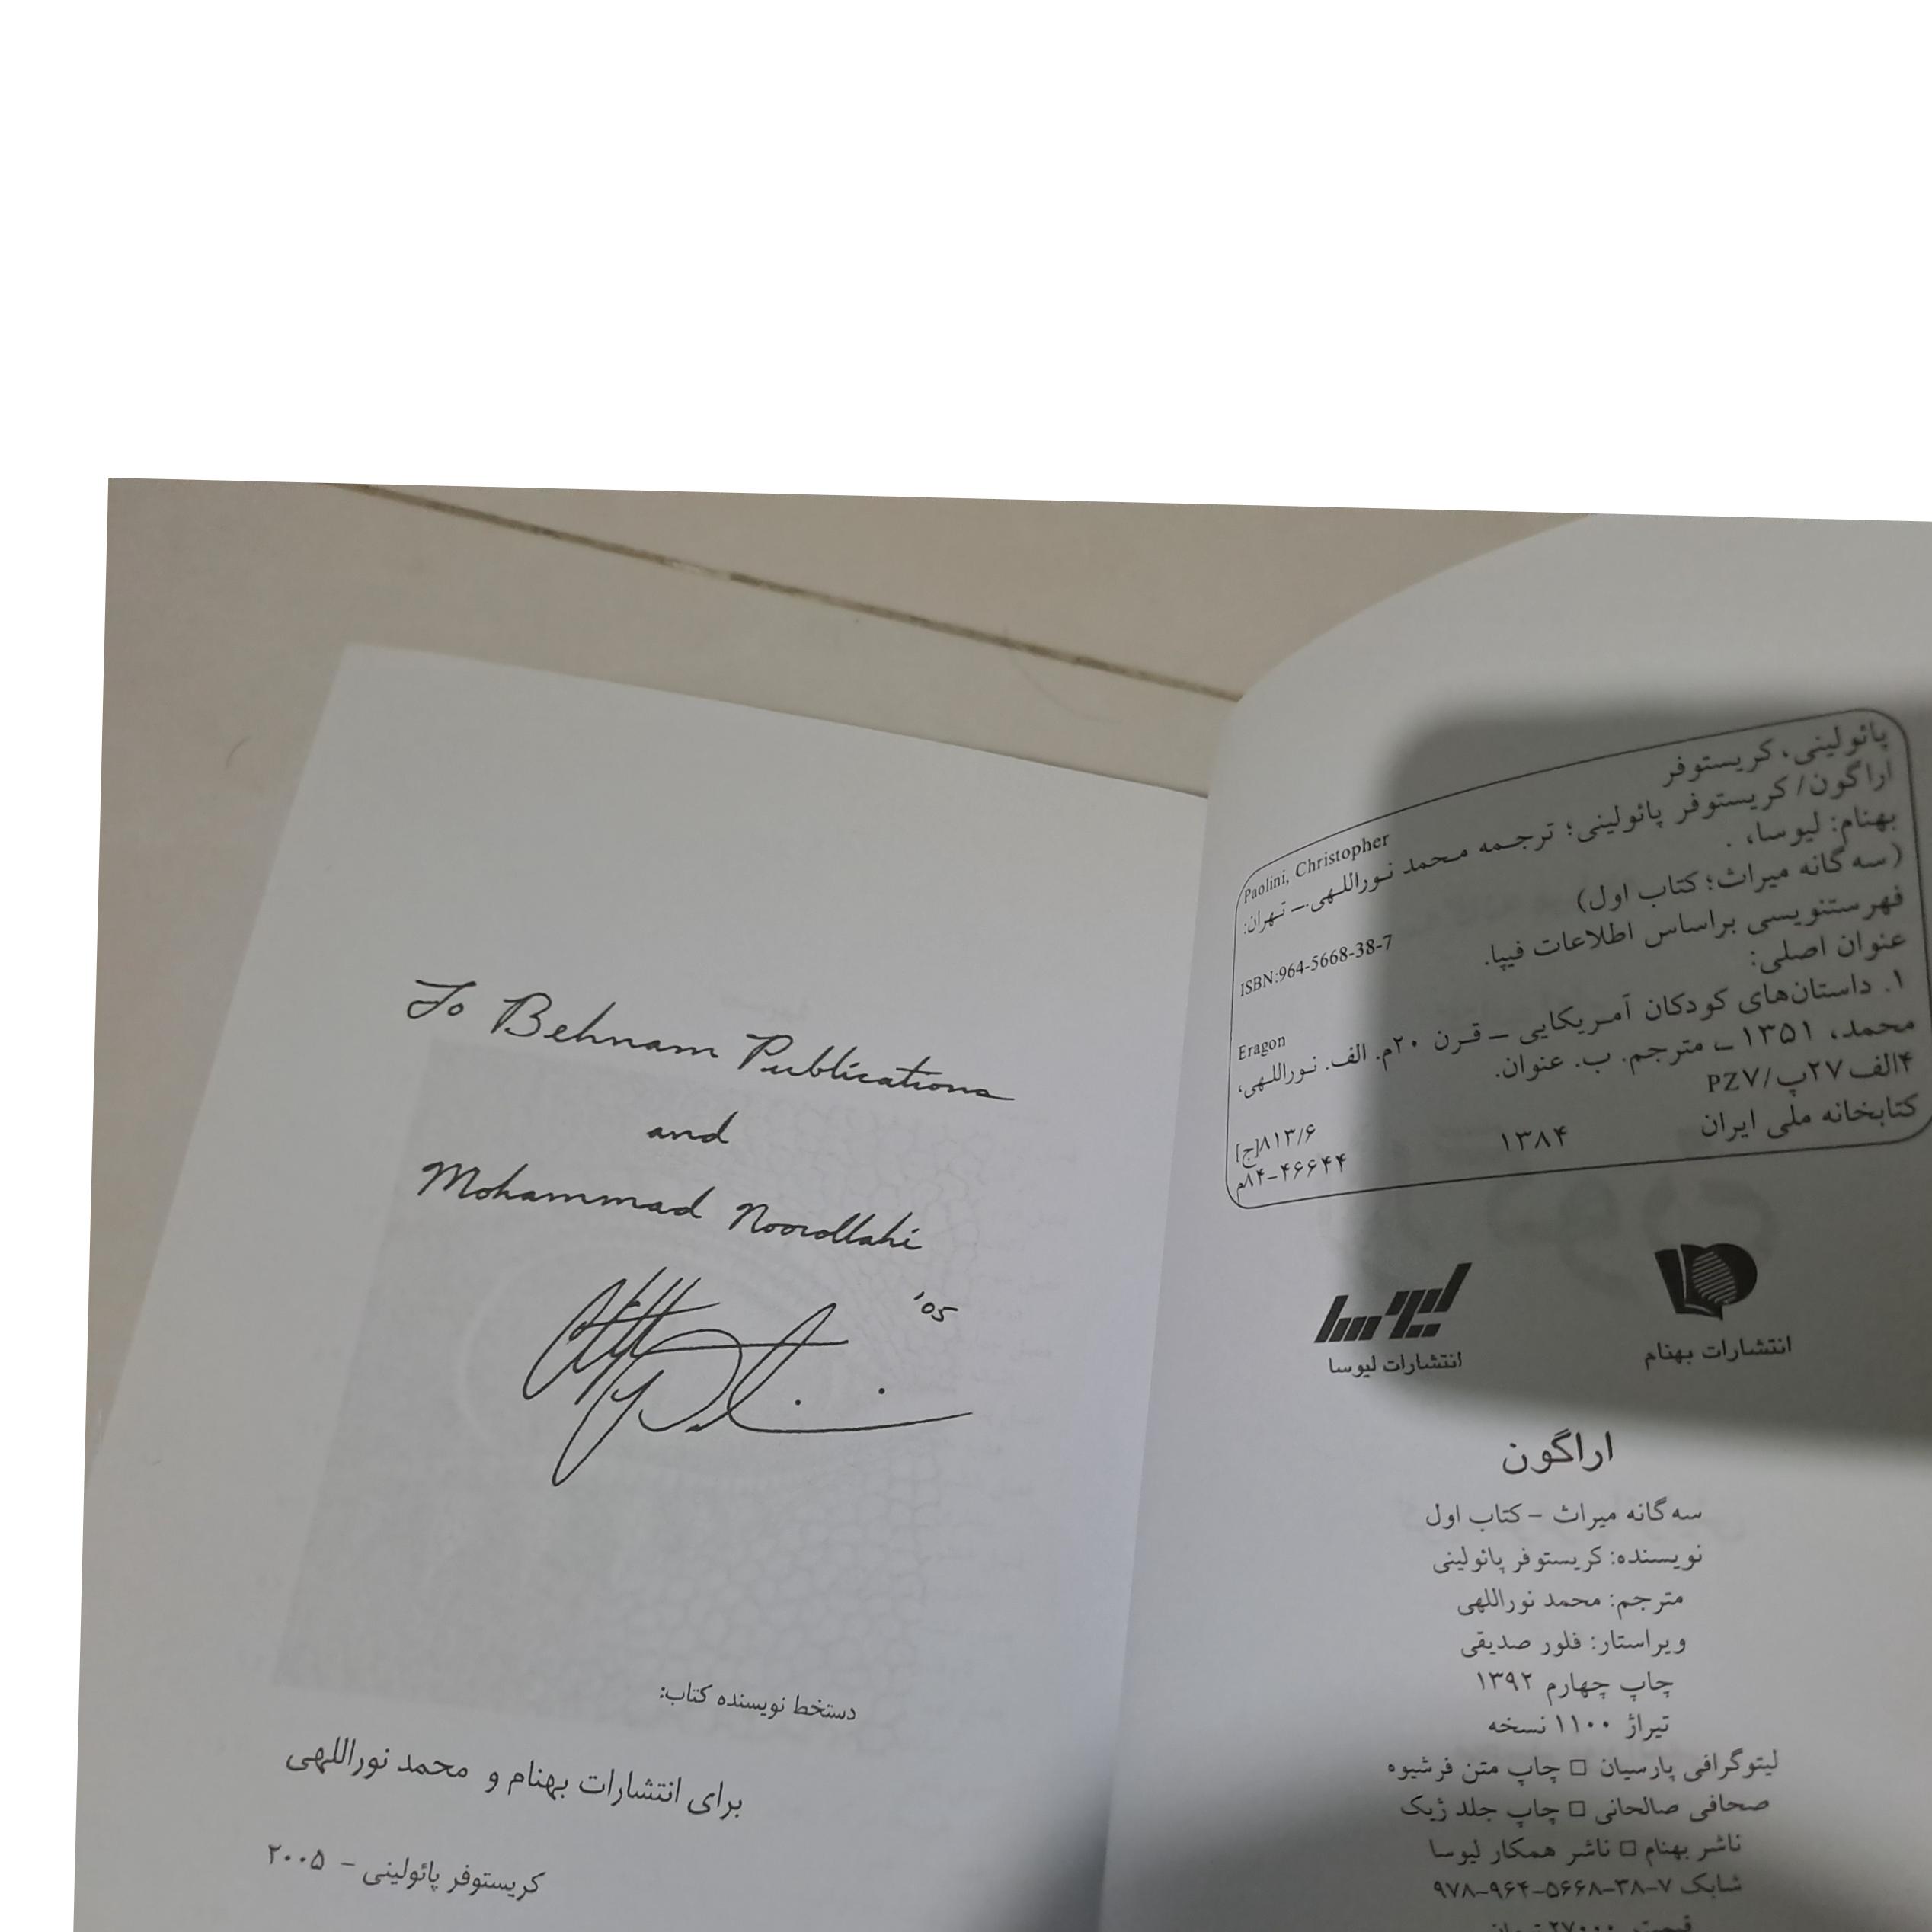 To Behnam Publications
and
Mohammad Noorollahi
'05
دستخط نویسنده کتاب:
برای انتشارات بهنام و محمد نوراللهی
کریستوفر پائولینی - ۲۰۰۵
پائولینی، کریستوفر
Paolini, Christopher
اراگون/ کریستوفر پائولینی؛ ترجمه محمد نوراللهی.ـ تهران:
بهنام: لیوسا، .
(سه گانه میراث؛ کتاب اول)
ISBN:964-5668-38-7
فهرستنویسی براساس اطلاعات فیپا.
عنوان اصلی:
Eragon
۱. داستان‌های کودکان آمریکایی ـ قرن ۲۰م. الف. نوراللهی،
محمد، ۱۳۵۱ ـ مترجم. ب. عنوان.
۴الف۲۷پ/PZ۷
۸۱۳/۶[ج]
کتابخانه ملی ایران ۱۳۸۴ ۴۶۶۴۴-۸۴م
لیوسا
انتشارات لیوسا
انتشارات بهنام
اراگون
سه گانه میراث - کتاب اول
نویسنده: کریستوفر پائولینی
مترجم: محمد نوراللهی
ویراستار: فلور صدیقی
چاپ چهارم ۱۳۹۲
تیراژ ۱۱۰۰ نسخه
لیتوگرافی پارسیان □ چاپ متن فرشیوه
صحافی صالحانی □ چاپ جلد ژیک
ناشر بهنام □ ناشر همکار لیوسا
شابک ۷-۳۸-۵۶۶۸-۹۶۴-۹۷۸